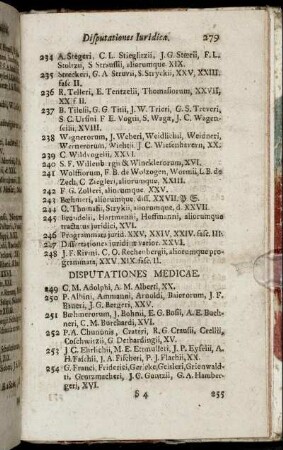 Disputationes Iuridicæ. 279
234 A. Stegeri, C. L. Stieglitzii, J. G. Stoerii, F. L.
Stultzii, S Straussii, aliorumque XIX.
235 Streckeri, G. A Struvii, S. Stryckii, XXV, XXIII.
fasc II.
236 R. Telleri, E. Tentzelii, Thomasiorum, XXVII,
XX. f II.
237 B. Tilesii, G. G. Titii, J. W. Trieri, G. S. Treveri,
S. C. Ursini F E. Vogtii, S. Wagæ, J. C. Wagen-
seilii, XVIII.
238 Wagnerorum, J. Weberi, Weidlichii, Weidneri,
Wernerorum, Wichtii, J. C. Wiesenhavern, XX.
239 C. Wildvogelii, XXVI.
240 S. F. Willenbergii & Wincklerorum, XVI.
241 Wolffiorum, F. B. de Wolzogen, Wormii, L B. de
Zech, C Ziegleri, aliorumque, XXIII.
242 F G. Zolleri, aliorumque. XXV.
243 Bœhmeri, aliorumque. diss. XXVII.
244 C. Thomasii, Strykii, aliorumque, d. XXVII
245 Brendelii, Hartmanni, Hoffmanni, aliorumque
tractatus juridici, XVI.
246 Programmata jurid. XXV, XXIV. XXIV. fasc. III.
247 Dissertationes juridicæ varior. XXVI.
248 J. F. Rivini. C. O. Rechenbergii, aliorumque pro-
grammata, XXV. XIX. fasc. II.
DISPUTATIONES MEDICAE.
249 C. M. Adolphi, A. M. Alberti, XX.
250 P. Albini, Ammanni, Arnoldi, Baierorum, J. F.
Baueri, J. G. Bergeri, XXV.
251 Bœhmerorum, J. Bohnii, E G. Bosii, A E. Buch-
neri, C. M. Burchardi, XVI.
252 P. A. Chunonis, Crateri, R. G. Crausii, Crellii,
Coschwitzii, G. Dethardingii, XV.
253 J C. Ehrlichii, M E. Ettmulleri, J P. Eyselii, A
H. Faschii, J A. Fischeri, P J. Flachii, XX.
254 G. Franci, Friderici, Gericke, Geisleri, Grienwald-
ti, Grutzmacheri, J. G. Guntzii, G. A. Hamber-
geri, XVI.
S 4 255